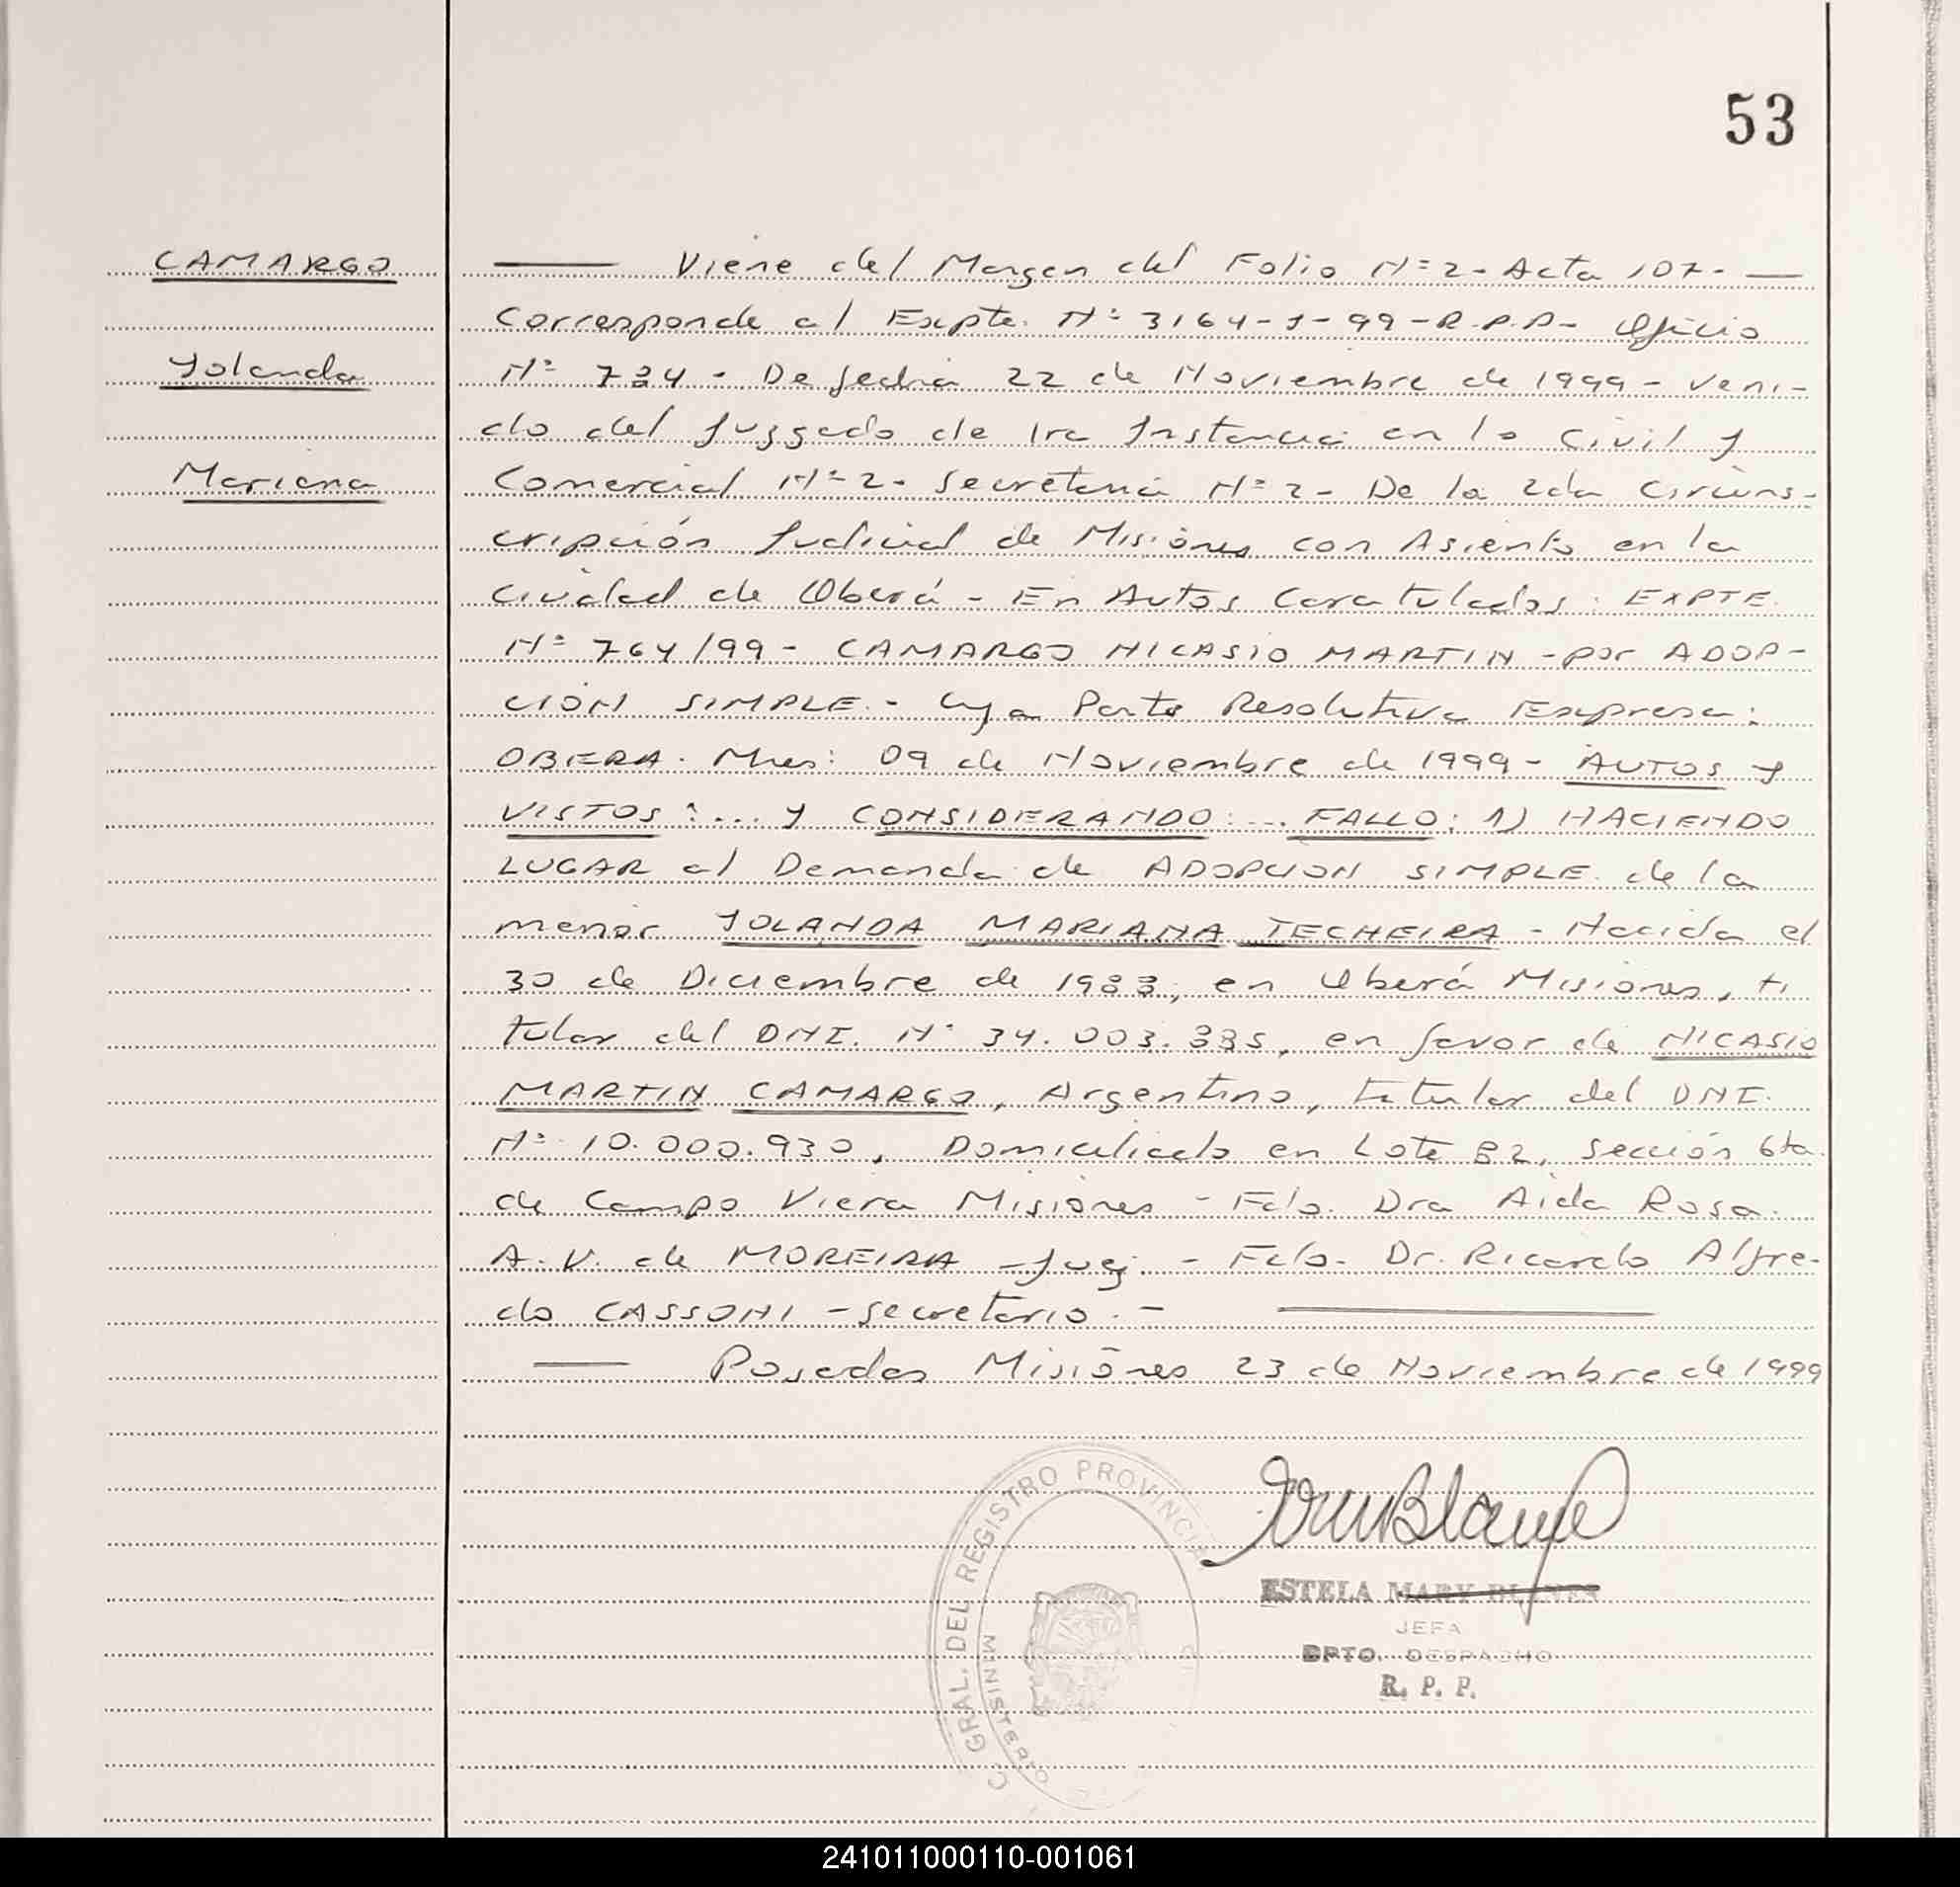 53
CAMARGO
Yolanda
Mariana
Viene del Margen del Folio Nº 2 - Acta 107 -
Corresponde al Expte. Nº 3164-J-99-R.P.P- Oficio
Nº 784 - De fecha 22 de Noviembre de 1999 - veni-
do del Juzgado de 1ra Instancia en lo Civil y
Comercial Nº 2. Secretaria Nº 2 - De la 2da Circuns-
cripción Judicial de Misiones con Asiento en la
ciudad de Oberá - En Autos Caratulados: EXPTE.
Nº 764/99 - CAMARGO NICASIO MARTIN - por ADOP-
CIÓN SIMPLE. - Cuya Parte Resolutiva Expresa:
OBERA. Mnes: 09 de Noviembre de 1999 - AUTOS y
VISTOS:... y CONSIDERANDO:... FALLO: 1) HACIENDO
LUGAR al Demanda de ADOPCION SIMPLE de la
menor YOLANDA MARIANA TECHEIRA - Nacida el
30 de Diciembre de 1988, en Oberá Misiones, ti
tular del DNI. Nº 34.003.885, en favor de NICASIO
MARTIN CAMARGO, Argentino, titular del DNI.
Nº 10.000.930, Domiciliado en Lote 82, sección 6ta.
de Campo Viera Misiones - Fdo. Dra Aida Rosa.
A.V. de MOREIRA - Juez. - Fdo. Dr. Ricardo Alfre-
do CASSONI - secretario. -
Posadas Misiones 23 de Noviembre de 1999
GRAL. DEL REGISTRO PROVINCIA
MINISTERIO
ESTELA MARY BLANES
JEFA
DPTO. DESPACHO
R. P. P.
241011000110-001061